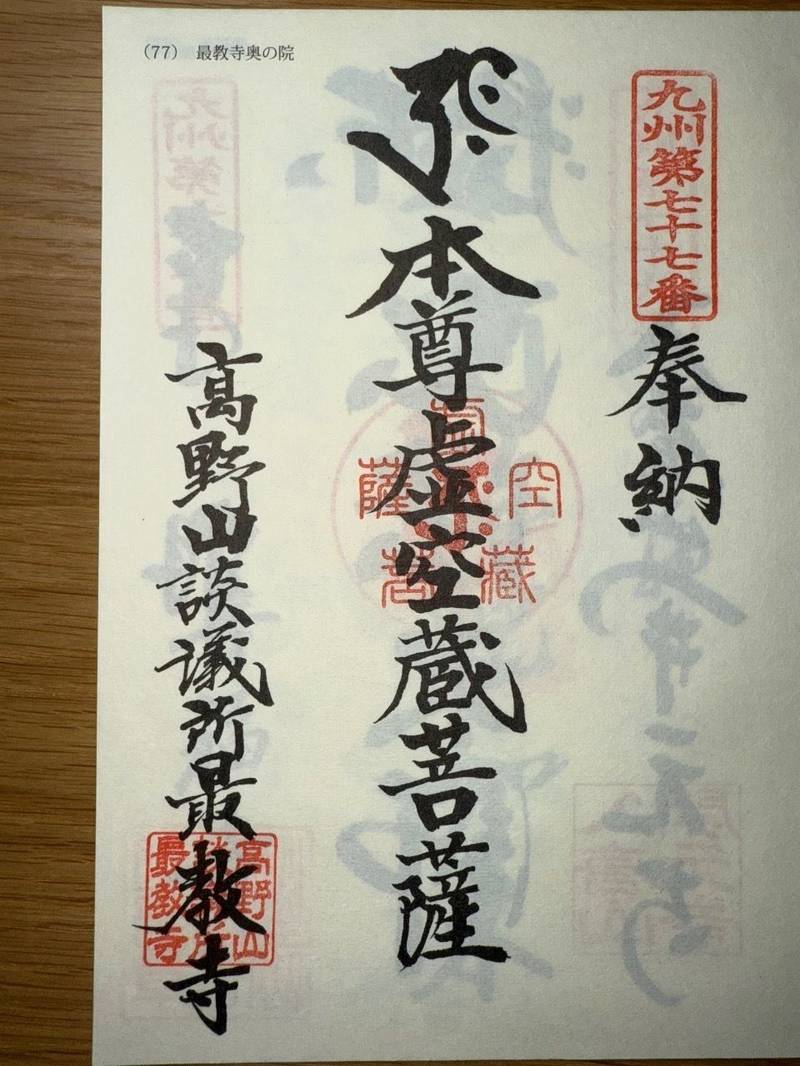 (77) 最教寺奥の院
九州第七十七番
奉納
本尊虚空蔵菩薩
空蔵菩薩
高野山談議所最教寺
高野山
最教寺